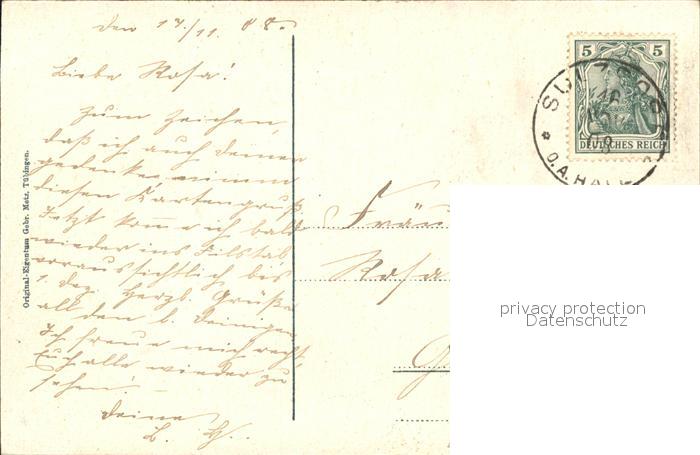 den 17./11. 08.
Liebe Rosa!
Zum Zeichen,
daß ich auch Deiner
gedenke nimm
diesen Kartengruß
Jetzt komme ich bald
wieder ins Filstal
voraussichtlich bis
1. Dez. Herzl. Grüße
all den l. Deinigen
Ich freue mich recht
Euch alle wieder zu
sehen!
Deine
L. H.
Original-Eigentum Gebr. Metz, Tübingen.
5 5
DEUTSCHES REICH
SULZ
O.A. HALL
Fräu
Rosa
privacy protection
Datenschutz